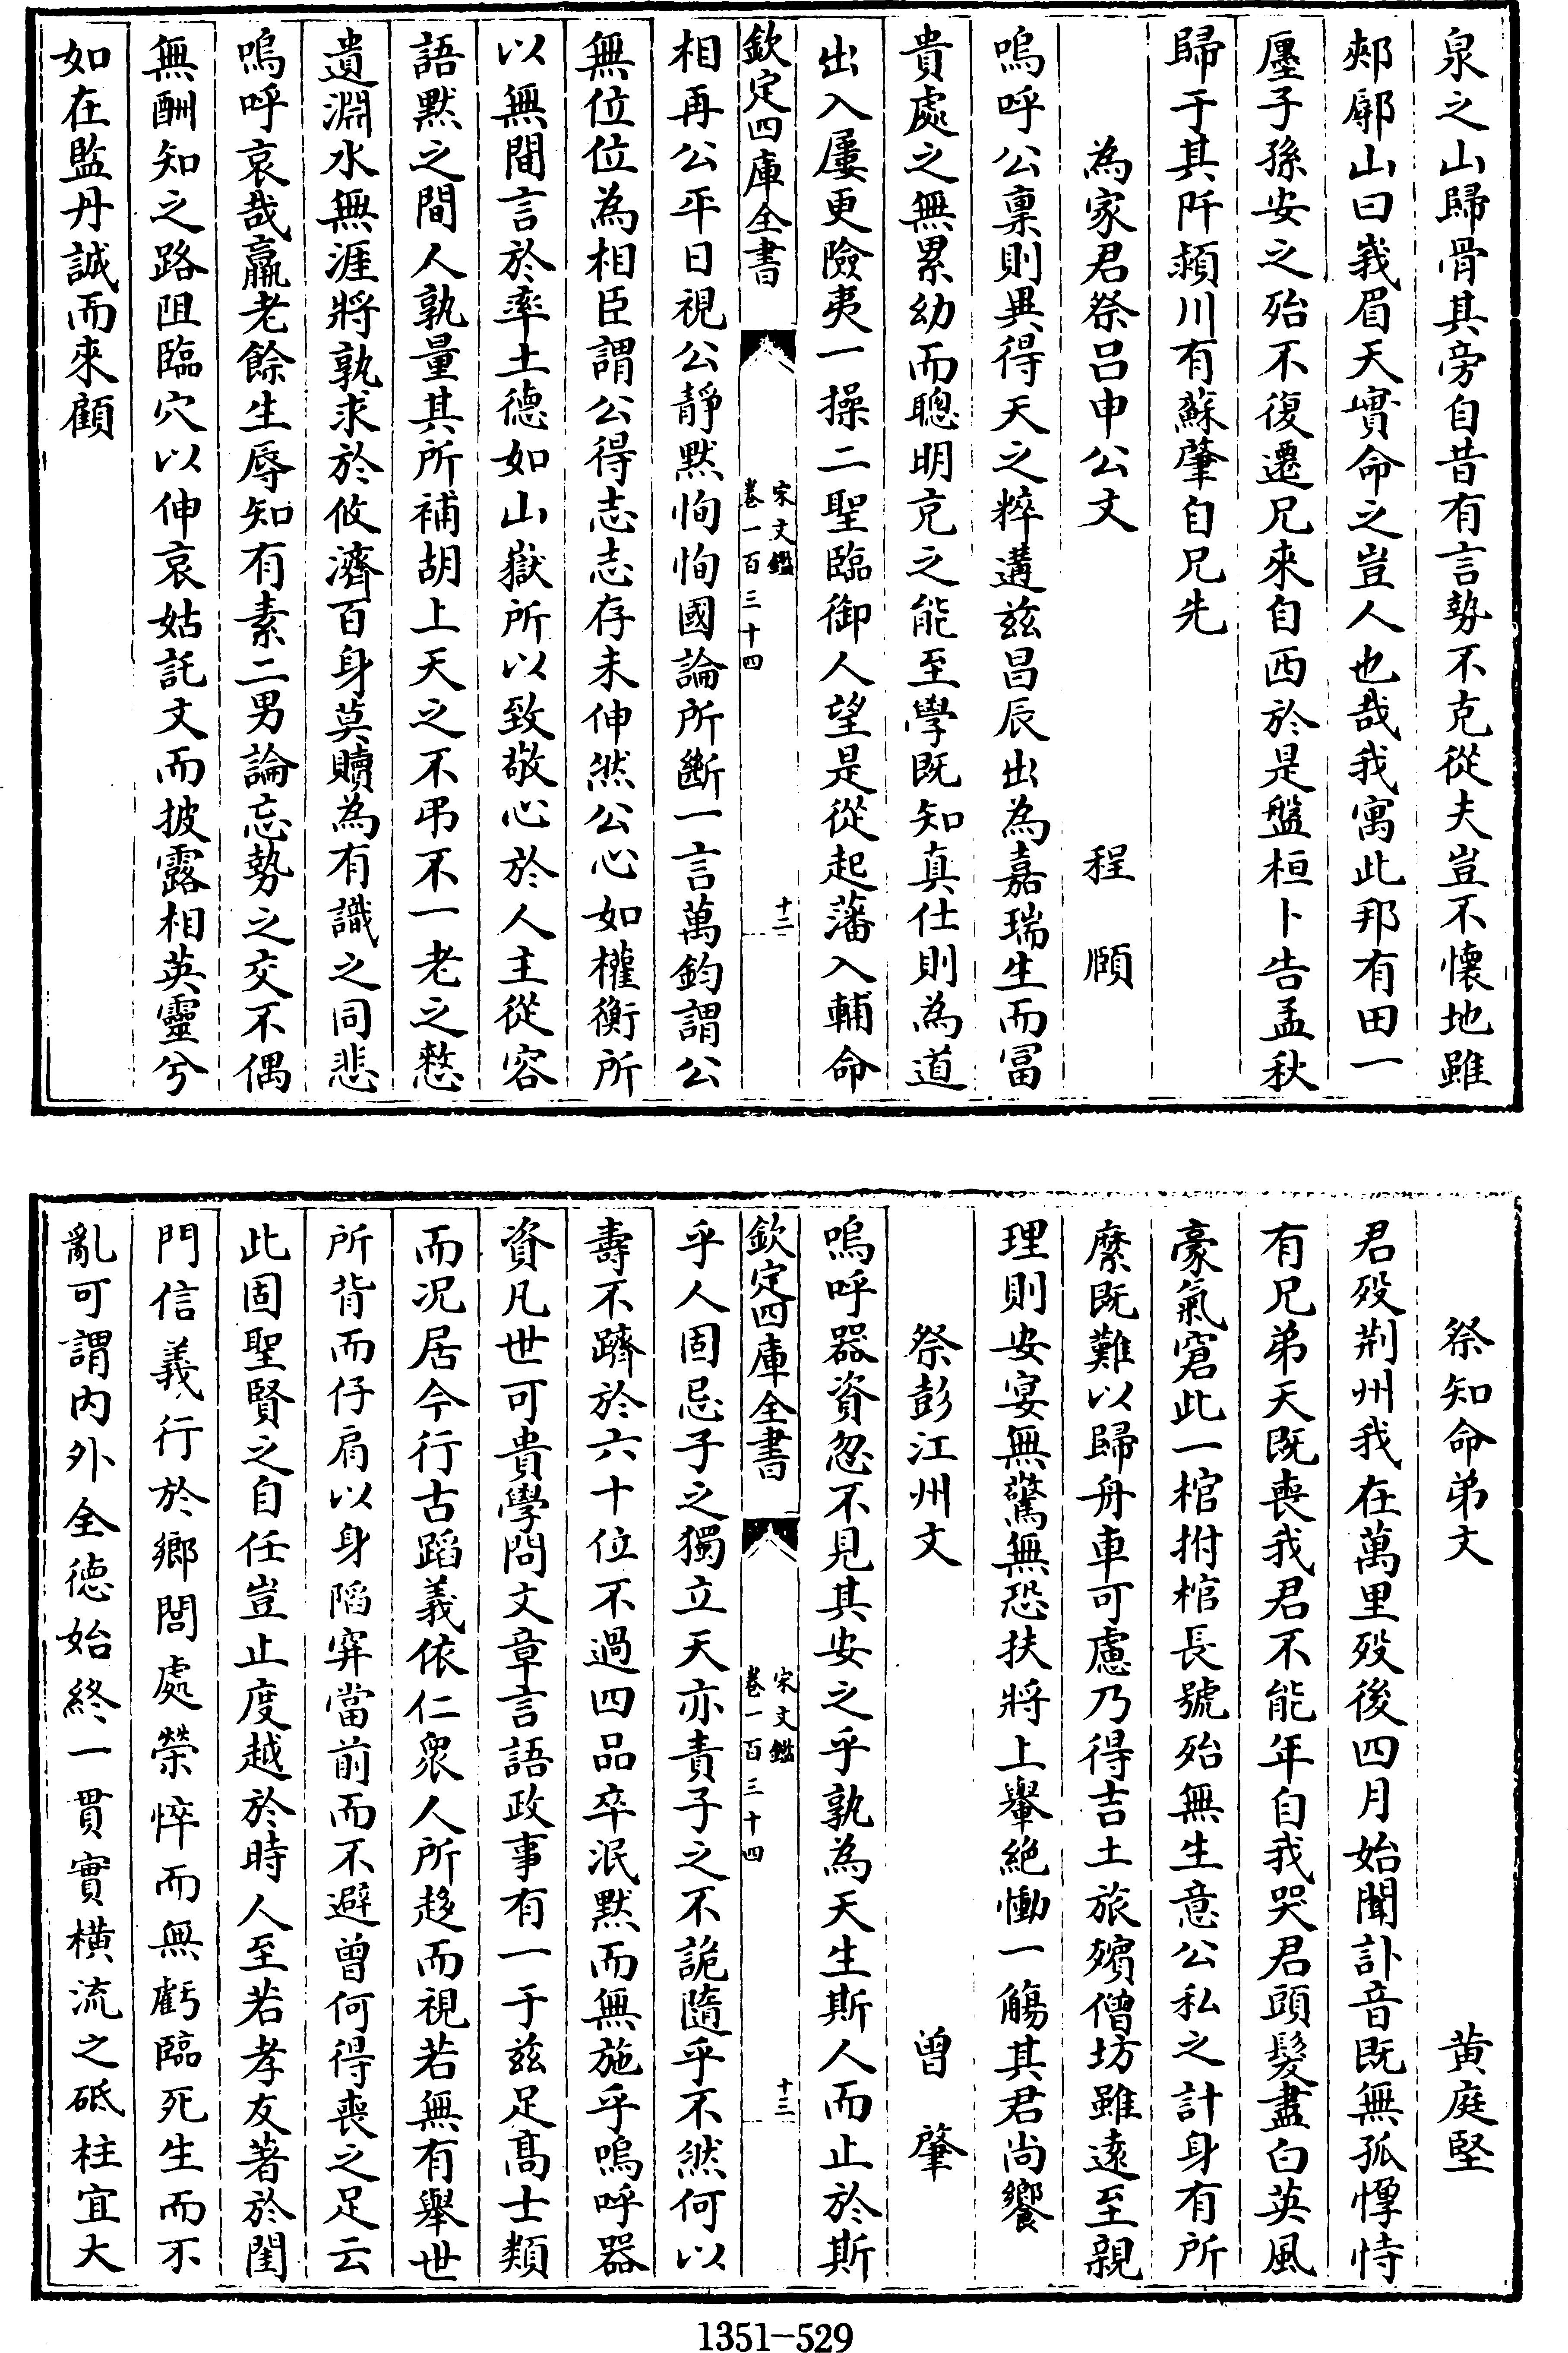 泉之山歸骨其旁自昔有言勢不克從夫豈不懷地雖
郟鄏山曰峩眉天實命之豈人也哉我寓此邦有田一
廛子孫安之殆不復遷兄來自西於是盤桓卜告孟秋
歸于其阡潁川有蘇肇自兄先
為家君祭呂申公文 程 頤
嗚呼公稟則異得天之粹遘兹昌辰出為嘉瑞生而冨
貴處之無累幼而聰明克之能至學既知真仕則為道
出入屢更險夷一操二聖臨御人望是從起藩入輔命
欽定四庫全書 宋文鑑 卷一百三十四 十二
相再公平日視公靜默恂恂國論所斷一言萬鈞謂公
無位位為相臣謂公得志志存未伸然公心如權衡所
以無間言於率土德如山嶽所以致敬心於人主從容
語默之間人孰量其所補胡上天之不弔不一老之憗
遺淵水無涯將孰求於攸濟百身莫贖為有識之同悲
嗚呼哀哉羸老餘生辱知有素二男論忘勢之交不偶
無酬知之路阻臨穴以伸哀姑託文而披露相英靈兮
如在監丹誠而來顧
祭知命弟文 黄庭堅
君殁荆州我在萬里殁後四月始聞訃音既無孤惸恃
有兄弟天既喪我君不能年自我哭君頭髮盡白英風
豪氣窘此一棺拊棺長號殆無生意公私之計身有所
縻既難以歸舟車可慮乃得吉土旅殯僧坊雖遠至親
理則安宴無驚無恐扶將上轝絶慟一觴其君尚饗
祭彭江州文 曾 肇
嗚呼器資忽不見其安之乎孰為天生斯人而止於斯
欽定四庫全書 宋文鑑 卷一百三十四 十三
乎人固忌子之獨立天亦責子之不詭隨乎不然何以
壽不躋於六十位不過四品卒泯默而無施乎嗚呼器
資凡世可貴學問文章言語政事有一于兹足髙士類
而况居今行古蹈義依仁衆人所趍而視若無有舉世
所背而仔肩以身陷穽當前而不避曾何得喪之足云
此固聖賢之自任豈止度越於時人至若孝友著於閨
門信義行於鄉閭處榮悴而無虧臨死生而不
亂可謂内外全德始終一貫實横流之砥柱宜大
1351—529